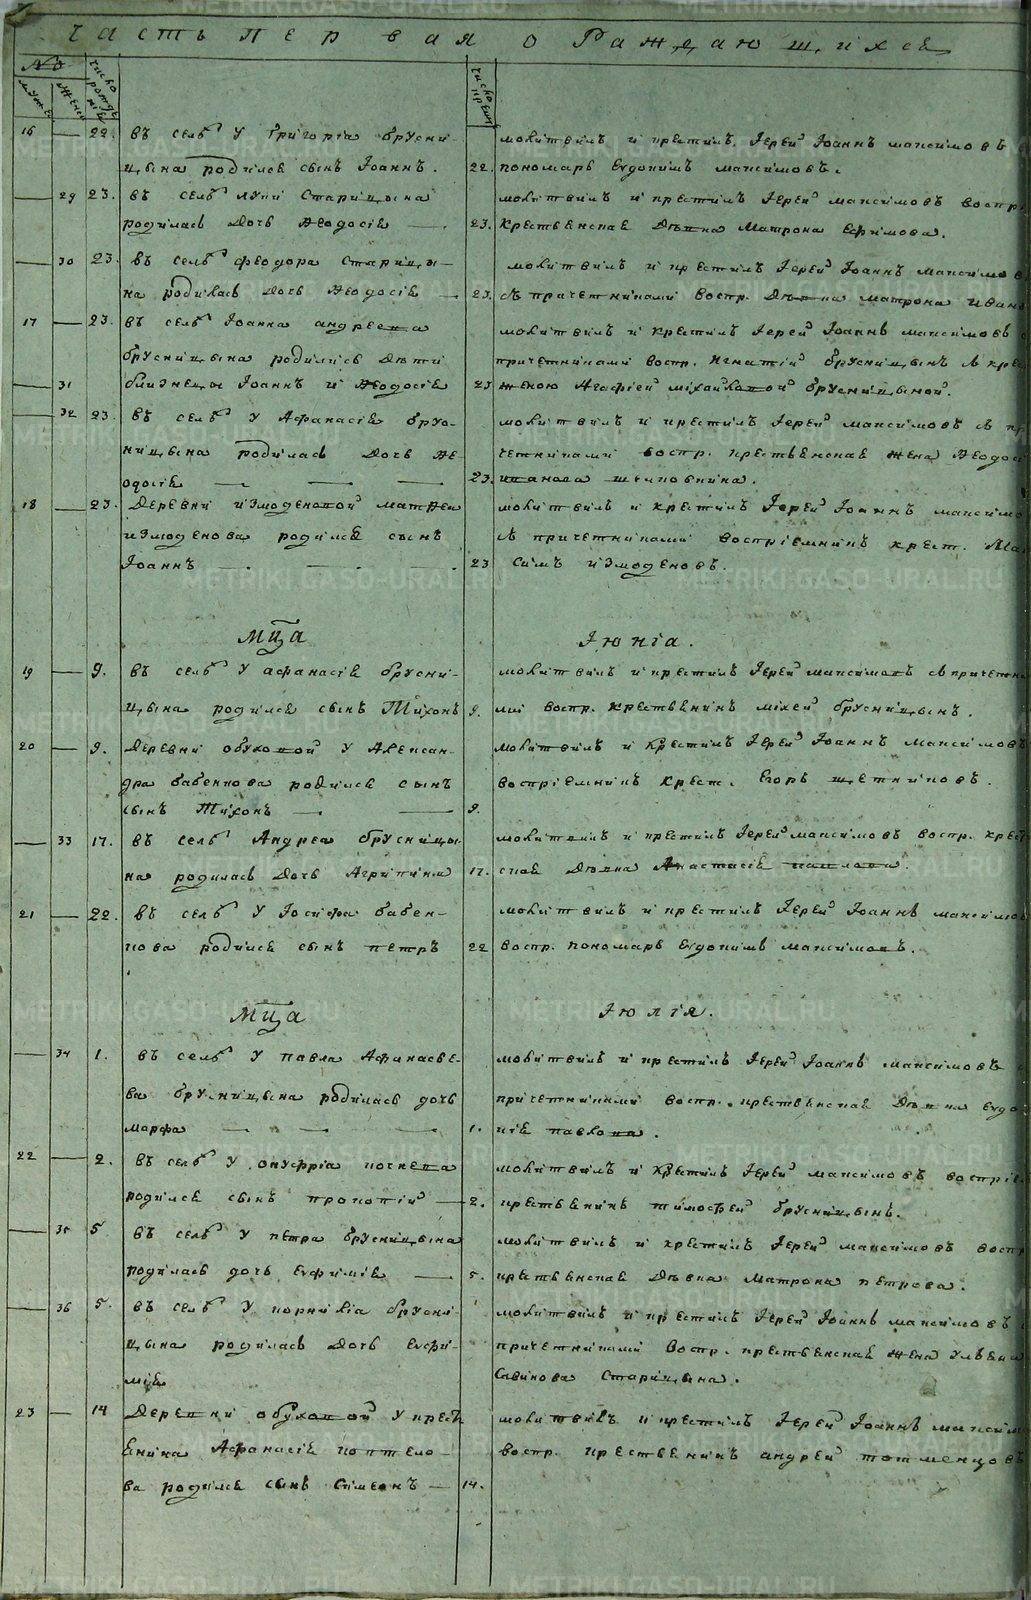 Часть первая о Раждающихся
№
мужс
женс
число рождення
число крещ
16 — 22. въ селѣ У Григорія брусни-
цына родился сынъ Іоаннъ.
молитвилъ и крестилъ Іерей Іоаннъ максимовъ
22. пономарь Евдокимъ максимовъ.
— 29 23. въ селѣ луки Старицына
родилась Дочь Ѳеодосія — .
молитвилъ и крестилъ Іерей максимовъ воспр
23. Крестьянская Дѣвка Матрона Ефимова.
— 30 23. въ селѣ Феодора Старицы-
на родилась Дочь Ѳеодосія —
молитвилъ и крестилъ Іерей Іоаннъ максимов
23. съ причетниками воспр. Дѣвка матрона иван
17 — 23. въ селѣ Іоанна андреева
брусницына родились Дѣти
— 31 близнецы Іоаннъ и Ѳеодосія
молитвилъ и крестилъ Іерей Іоаннъ максимовъ
причетниками воспр. Игнатій брусницынъ съ
23 женою Агафіей михайловой брусницыной.
— 32 23. въ селѣ У Афанасія брус-
ницына родилась Дочь Ѳе-
одосія — — —
молитвилъ и крестилъ Іерей максимовъ съ пр
четниками воспр. крестьянская жена Ѳеодос
23. иванова шиповнина.
18 — 23. Деревни измоденовой матѳея
измоденова родился сынъ
Іоаннъ — — —
молитвилъ и крестилъ Іерей Іоаннъ максимо
съ причетниками воспріемникъ крест. Мак
23 симъ измоденовъ.
Мца Іюнія.
19 — 9. въ селѣ У афанасія брусни-
цына родился сынъ Тихонъ
молитвилъ и крестилъ Іерей максимовъ съ причетни
9. ми воспр. крестьянинъ михей брусницынъ.
20 — 9. Деревни обуховой У Алексан-
дра бабенкова родился сынъ
сынъ Тихонъ — —
молитвилъ и крестилъ Іерей Іоаннъ максимовъ
воспріемникъ крест. Егоръ щетниковъ.
9.
— 33 17. въ селѣ Андрея брусницы-
на родилась Дочь Агрипина
молитвилъ и крестилъ Іерей максимовъ воспр. крест
17. ская Дѣвка Анастасія павлова.
21 — 22. въ селѣ У Іосифа бабен-
кова родился сынъ петръ
молитвилъ и крестилъ Іерей Іоаннъ максимов
22 воспр. пономарь Евдокимъ максимовъ.
Мца Іюлія.
— 34 1. въ селѣ У павла Афанасье-
ва брусницына родилась дочь
марфа — — —
молитвилъ и крестилъ Іерей Іоаннъ максимовъ
причетниками воспр. крестьянская Дѣвка Евдо
1. кія павлова.
22 — 2. въ селѣ У онуфрія кочнева
родился сынъ прокопій —
молитвилъ и крестилъ Іерей максимовъ воспріе
2. крестьянинъ тимофей брусницынъ.
— 35 5 въ селѣ У петра брусницына
родилась дочь Евфимія —
молитвилъ и крестилъ Іерей максимовъ воспр
5. крестьянская Дѣвка Матрона петрова.
— 36 5. въ селѣ У корнилія брусни-
цына родилась Дочь Евфи-
мія
молитвилъ и крестилъ Іерей Іоаннъ максимовъ
причетниками воспр. крестьянская жена Ульяна
Савинова Старицына.
23 — 14 Деревни обуховой У крест
янина Афанасія коптело-
ва родился сынъ Симеонъ —
молитвилъ и крестилъ Іерей Іоаннъ максим
воспр. крестьянинъ андрей тотменцовъ
14.
METRIKI.GASO-URAL.RU